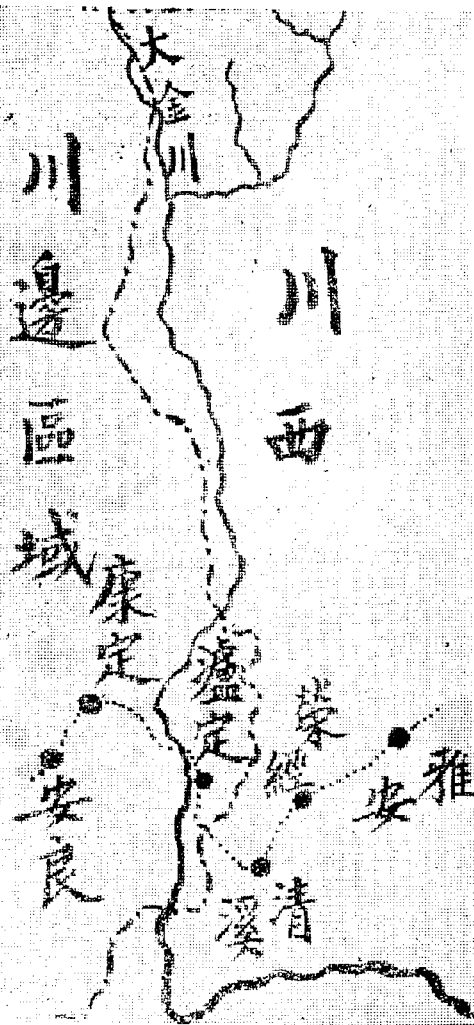 大金川
川邊區域
川西
康定
瀘定
榮經
雅安
安良
清溪